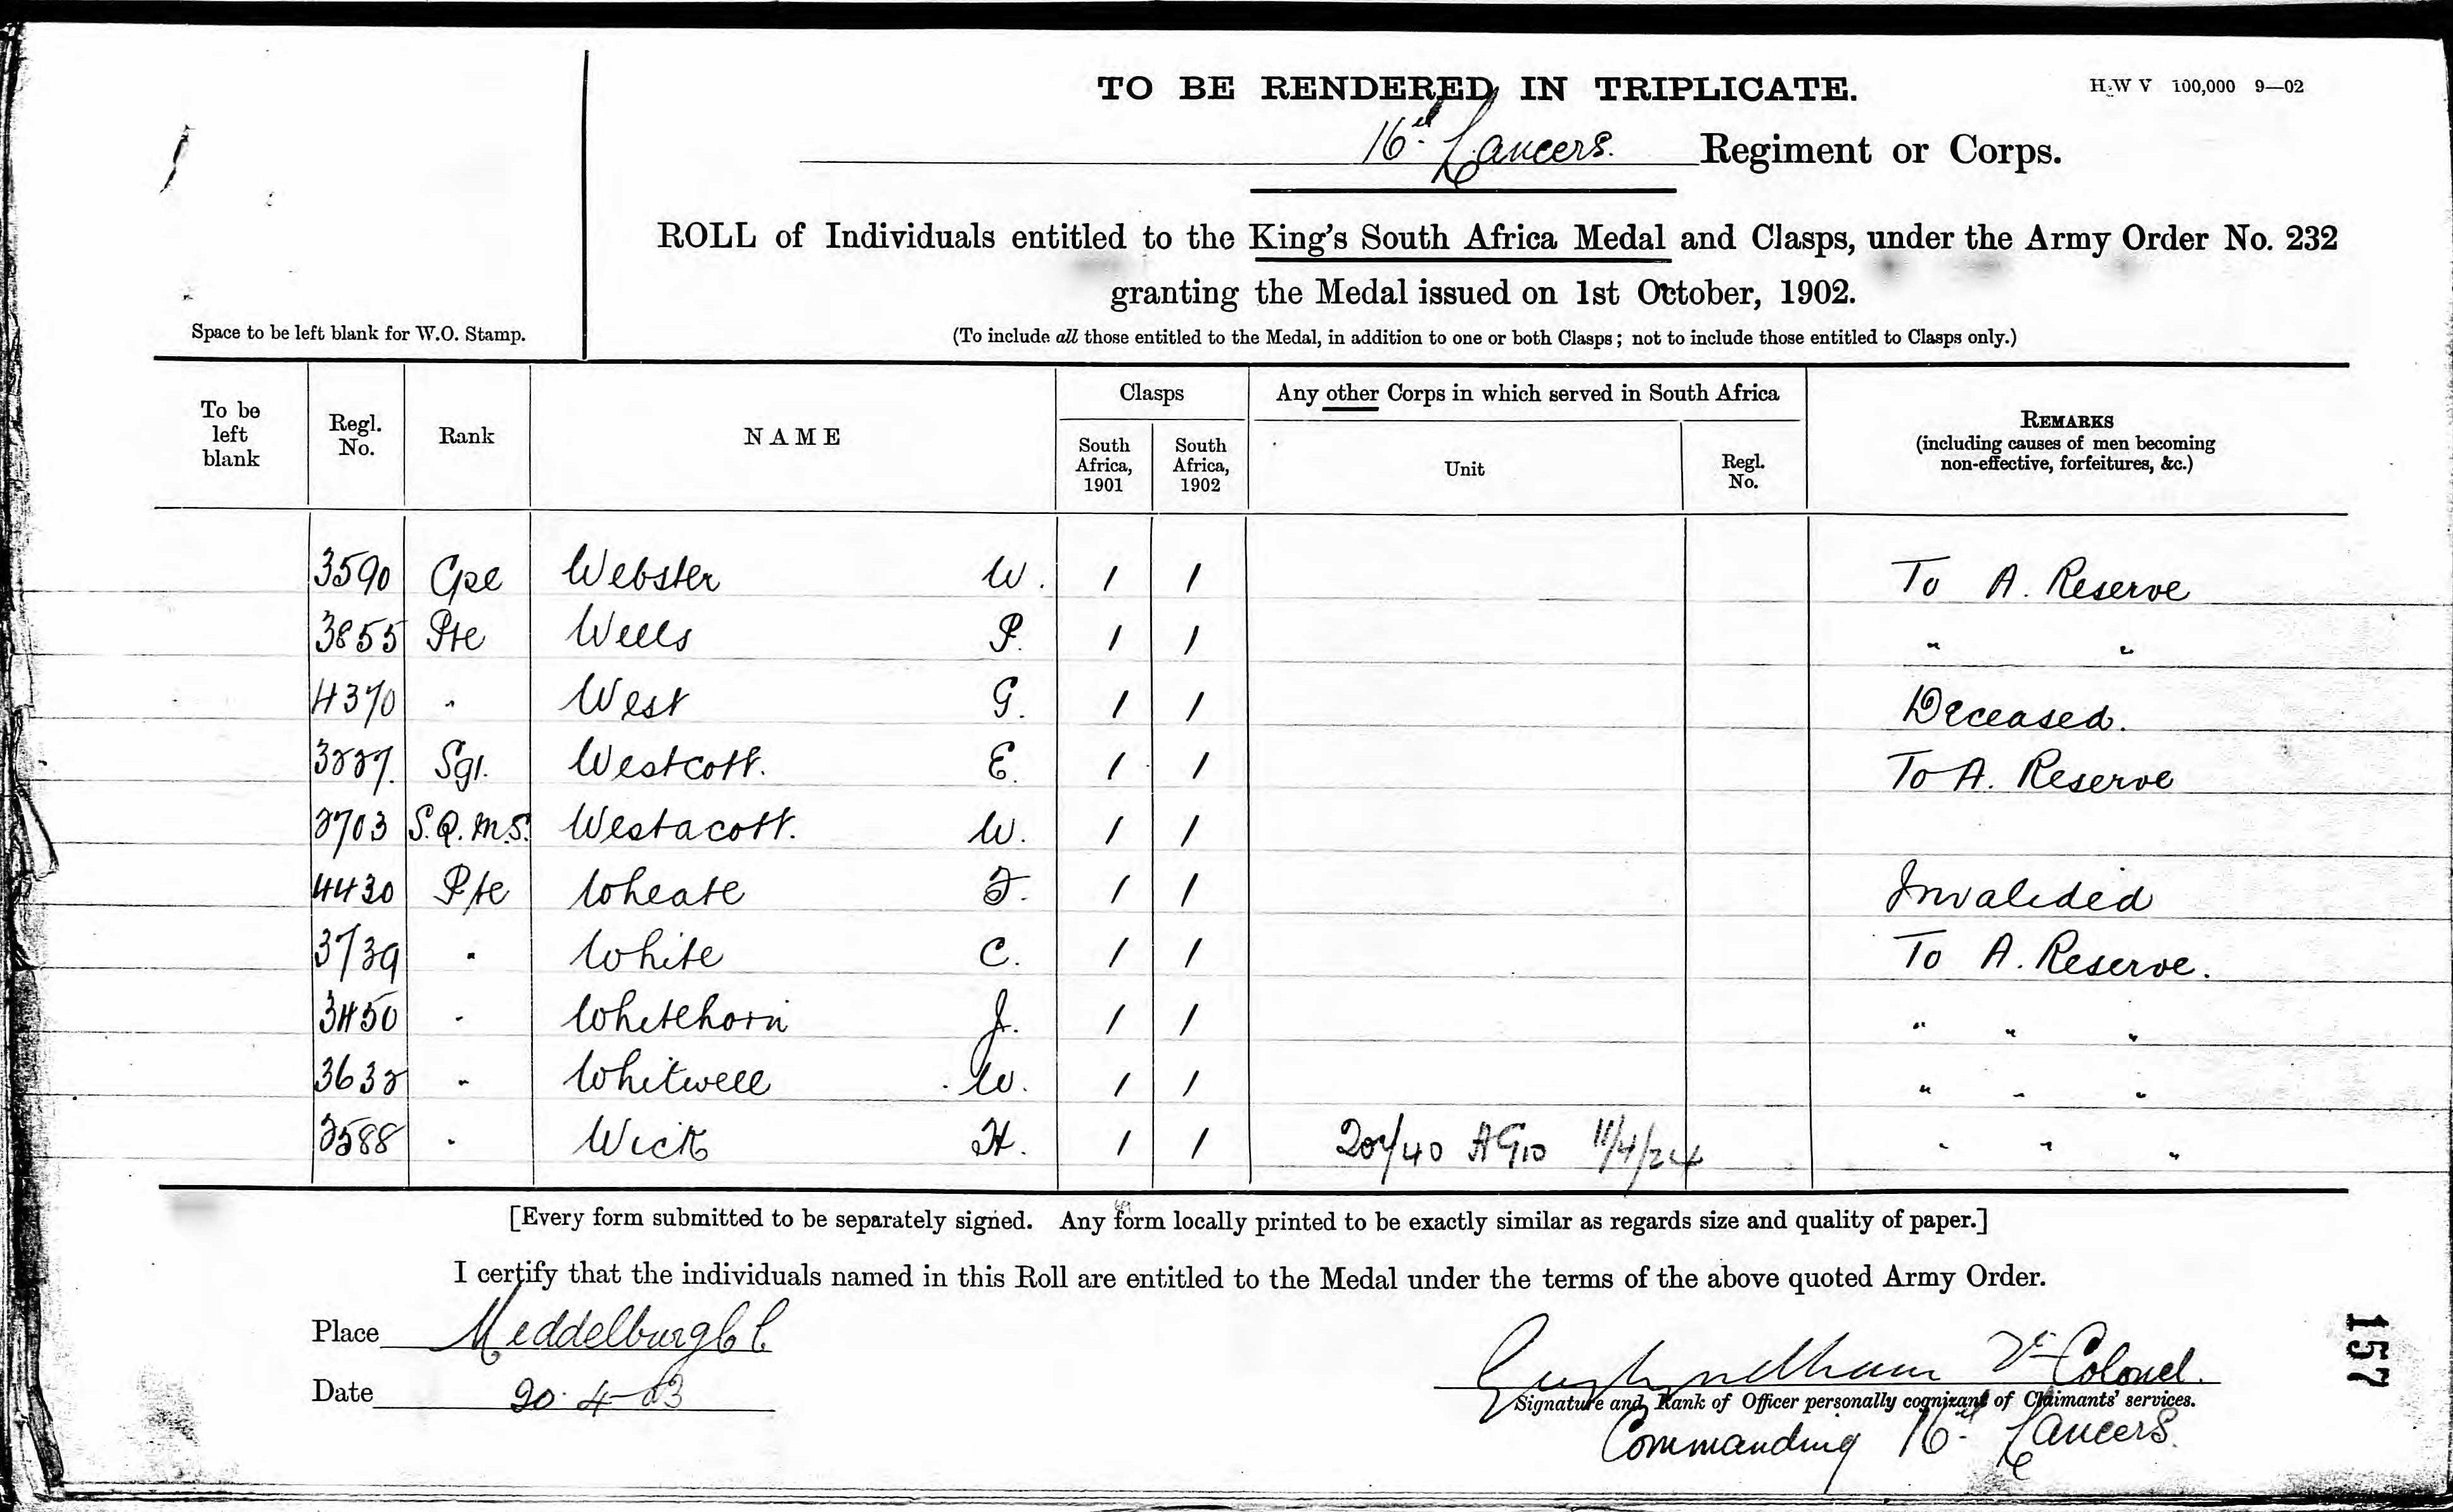 TO BE RENDERED IN TRIPLICATE.
H.W V 100,000 9—02
16th Lancers. Regiment or Corps.
ROLL of Individuals entitled to the King's South Africa Medal and Clasps, under the Army Order No. 232
granting the Medal issued on 1st October, 1902.
Space to be left blank for W.O. Stamp.
(To include all those entitled to the Medal, in addition to one or both Clasps; not to include those entitled to Clasps only.)
To be left blank
Regl. No.
Rank
NAME
Clasps
South Africa, 1901
South Africa, 1902
Any other Corps in which served in South Africa
Unit
Regl. No.
REMARKS
(including causes of men becoming
non-effective, forfeitures, &c.)
3590 Cpl Webster W. 1 1 To A. Reserve
3855 Pte Wells P. 1 1 " "
4370 " West G. 1 1 Deceased.
Sgt. Westcott. E. 1 1 To A. Reserve
2703 S.Q.M.S. Westacott. W. 1 1
4430 Pte Wheate F. 1 1 Invalided
3739 " White C. 1 1 To A. Reserve.
3450 " Whitehorn J. 1 1 " " "
3632 " Whitwell W. 1 1 " " "
3588 " Wick H. 1 1 AG10 11/4/24 " " "
[Every form submitted to be separately signed. Any form locally printed to be exactly similar as regards size and quality of paper.]
I certify that the individuals named in this Roll are entitled to the Medal under the terms of the above quoted Army Order.
Place Middelburg C.C.
Date 20.4.03
Guy Wyndham Lt Colonel.
Signature and Rank of Officer personally cognizant of Claimants' services.
Commanding 16th Lancers.
157